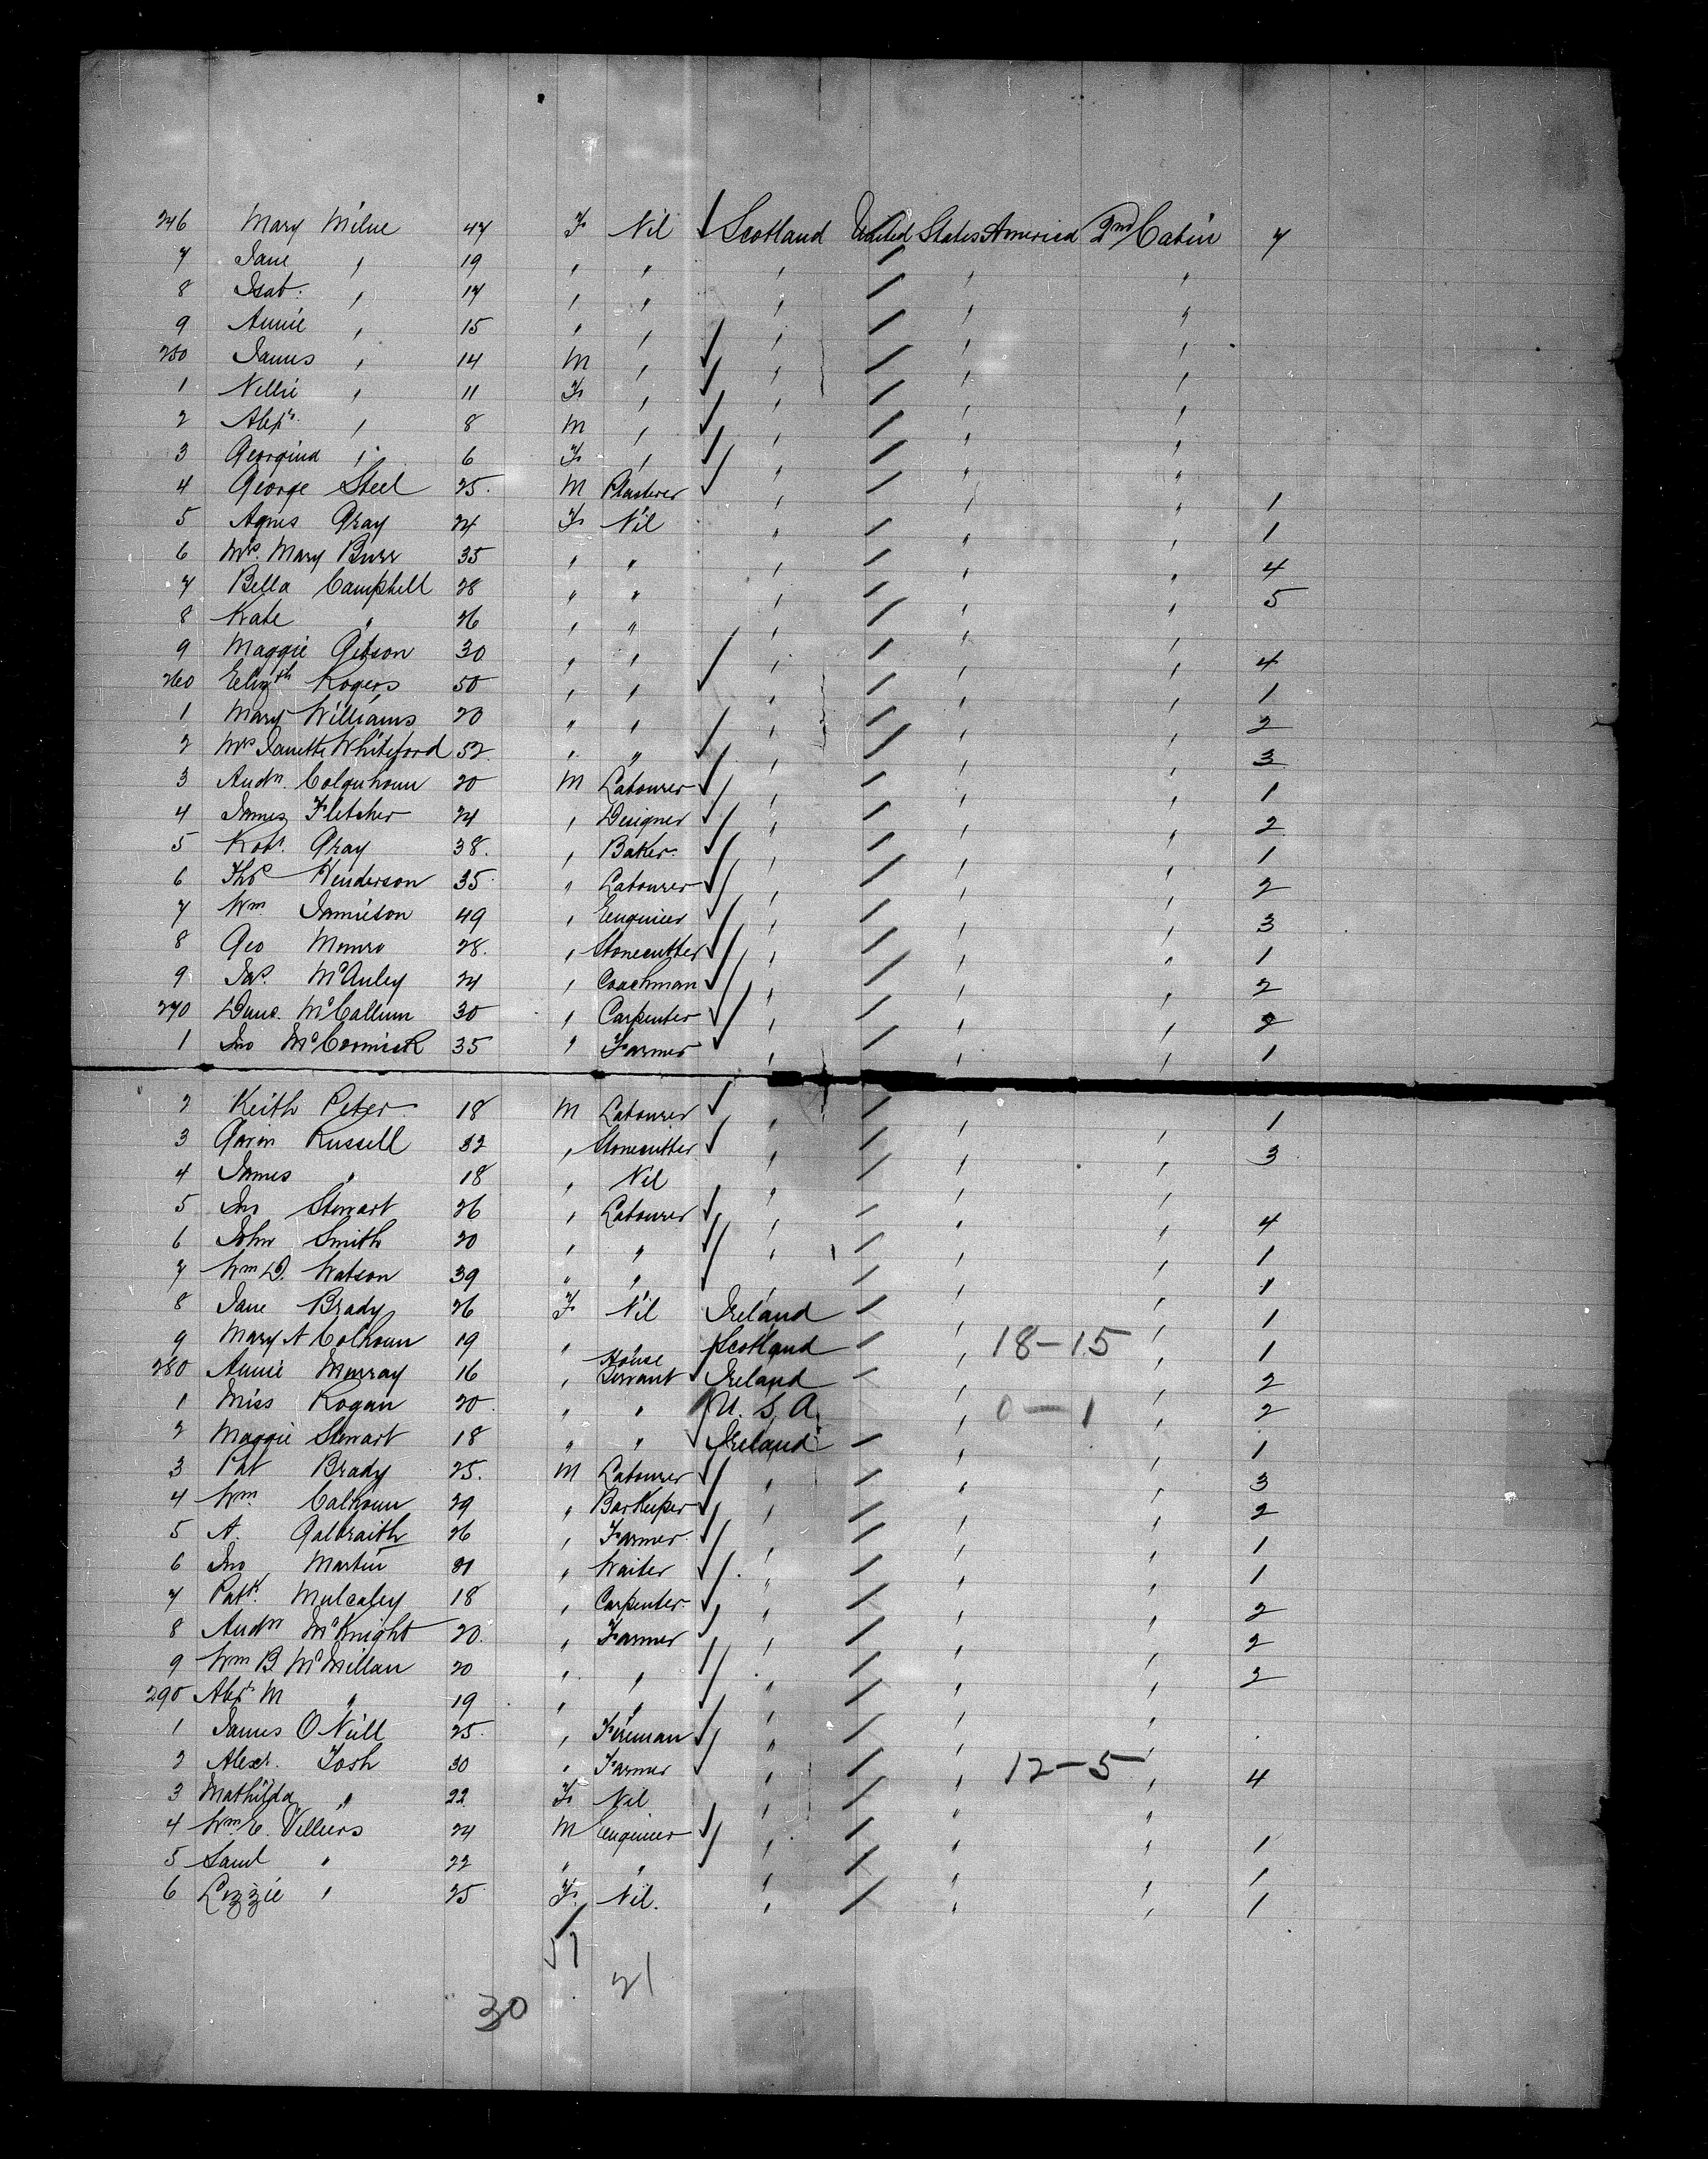 246 Mary Milne 47 F Nil Scotland United States America 2nd Cabin 7
7 Jane " 19 " " " " " "
8 Isab. " 17 " " " " "
9 Annie " 15 " " " " "
250 James " 14 M " " " "
1 Nellie " 11 F " " " "
2 Alexr. " 8 M " " " "
3 Georgina " 6 F " " " "
4 George Steel 25 M Plasterer " " " 1
5 Agnes Gray 24 F Nil " " " 1
6 Mrs. Mary Burr 35 " " " " " 4
7 Bella Campbell 28 " " " " " 5
8 Kate " 26 " " " " "
9 Maggie Gibson 30 " " " " " 4
260 Elizth Rogers 50 " " " " " 1
1 Mary Williams 20 " " " " " 2
2 Mrs Janette Whiteford 52 " " " " " 3
3 Andw. Colquhoun 20 M Labourer " " " 1
4 James Fletcher 24 " Designer " " " 2
5 Robt. Gray 38 " Baker " " " 1
6 Thos Henderson 35 " Labourer " " " 2
7 Wm. Jamieson 49 " Engineer " " " 3
8 Geo Munro 28 " Stonecutter " " " 1
9 Jas. McAuley 24 " Coachman " " " 2
270 Dunc. McCallum 30 " Carpenter " " " 2
1 Jno McCormick 35 " Farmer " " " 1
2 Keith Peter 18 M Labourer " " " 1
3 Gavin Russell 32 " Stonecutter " " " 3
4 James " 18 " Nil " " "
5 Jno Stewart 26 " Labourer " " " 4
6 John Smith 20 " " " " " 1
7 Wm D. Watson 39 " " " " " 1
8 Jane Brady 26 F Nil Ireland " " 1
9 Mary A Colhoun 19 " Scotland " 18-15 " 1
280 Annie Murray 16 " House Servant Ireland " " 2
1 Miss Rogan 20 " " U. S. A. " 0-1 " 2
2 Maggie Stewart 18 " " Ireland " " 1
3 Pat Brady 25 M Labourer " " " 3
4 Wm. Calhoun 29 " Barkeeper " " " 2
5 A. Galbraith 26 " Farmer " " " 1
6 Jno Martin 21 " Waiter " " " 1
7 Patk. Mulcaley 18 " Carpenter " " " 2
8 Andw McKnight 20 " Farmer " " " 2
9 Wm B McMillan 20 " " " " " 2
290 Alexr M " 19 " " " " "
1 James O'Neill 25 " Fireman " " "
2 Alexr. Tosh 30 " Farmer " " 12-5 " 4
3 Mathilda " 22 F Nil " " "
4 Wm E. Villiers 24 M Engineer " " " 1
5 Saml " 22 " " " " " 1
6 Lizzie " 25 F Nil. " " " 1
51
21
30